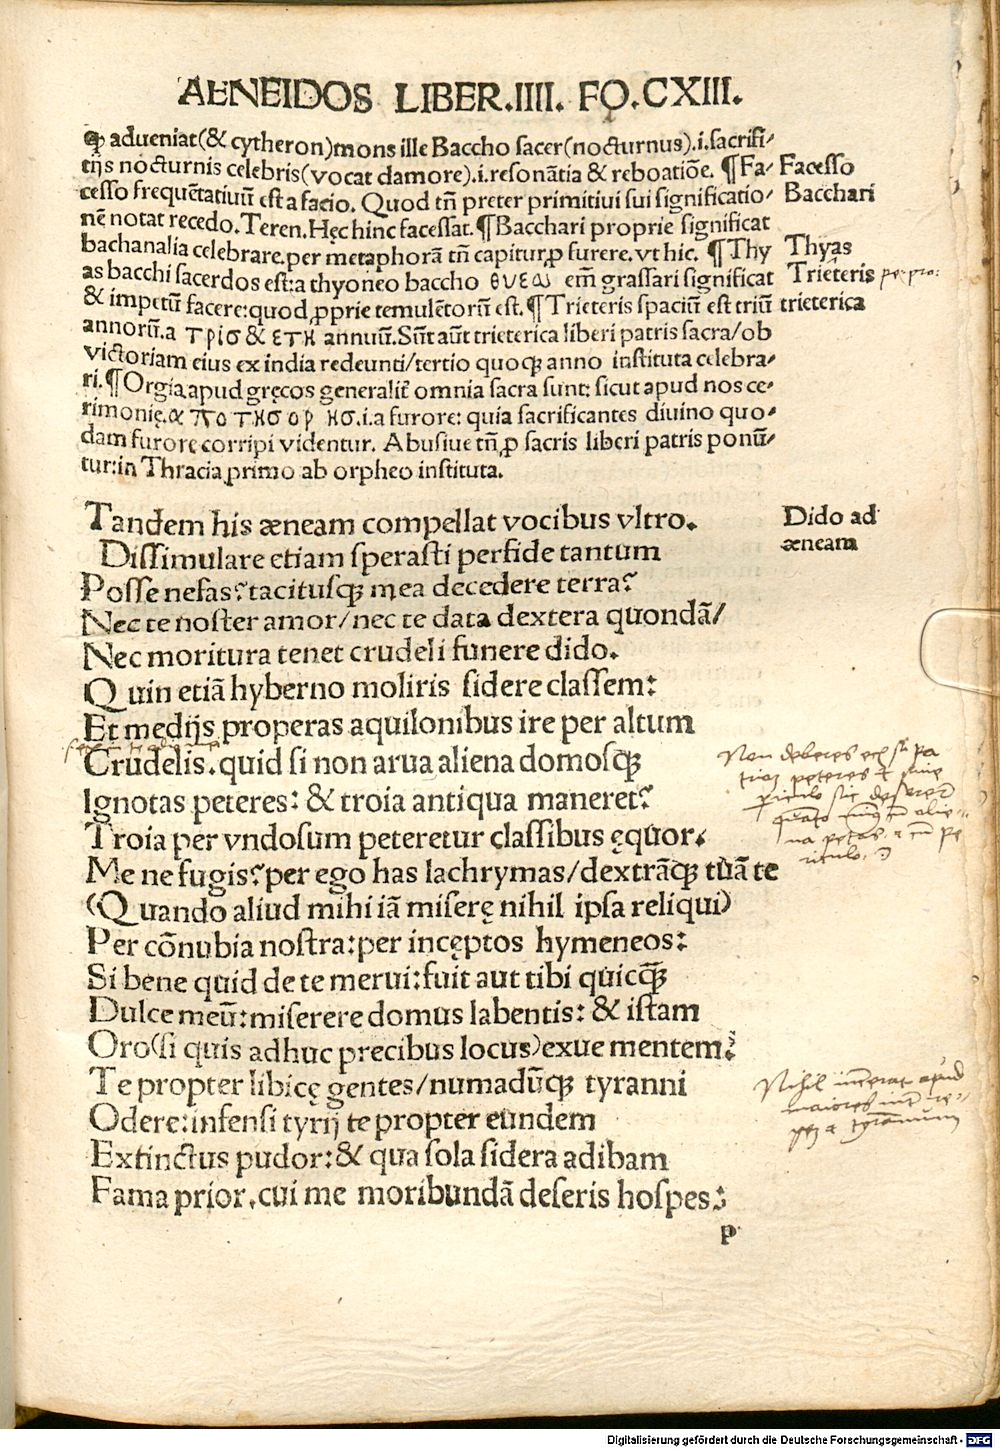 AENEIDOS LIBER.IIII. FO.CXIII.
ꝙ adueniat(& cytheron)mons ille Baccho sacer(nocturnus).i.sacrifi-
tijs nocturnis celebris(vocat damore).i.resonãtia & reboatiõe. ¶Fa-
cesso frequẽtatiuũ est a facio. Quod tñ preter primitiui sui significatio-
nẽ notat recedo. Teren. Hęc hinc facessat. ¶Bacchari proprie significat
bachanalia celebrare. per metaphorã tñ capitur ꝓ furere. vt hic. ¶Thy
as bacchi sacerdos est: a thyoneo baccho θυεω em̃ grassari significat
& impetũ facere: quod ꝓprie temulẽtorũ est. ¶Trieteris spaciũ est triũ
annorũ. a τρισ & ετη annuũ. Sũt aũt trieterica liberi patris sacra/ob
victoriam eius ex india redeunti/tertio quoqꝫ anno instituta celebra-
ri. ¶Orgia apud gręcos generalit̃ omnia sacra sunt: sicut apud nos ce-
rimonię. .i.a furore: quia sacrificantes diuino quo-
dam furore corripi videntur. Abusiue tñ ꝓ sacris liberi patris ponũ-
tur: in Thracia primo ab orpheo instituta.
Facesso
Bacchari
Thyas
Trieteris
trieterica
Tandem his æneam compellat vocibus vltro.
Dissimulare etiam sperasti perfide tantum
Posse nefas? tacitusqꝫ mea decedere terra?
Nec te noster amor/nec te data dextera quondã/
Nec moritura tenet crudeli funere dido.
Quin etiã hyberno moliris sidere classem:
Et medijs properas aquilonibus ire per altum
Crudelis. quid si non arua aliena domosqꝫ
Ignotas peteres: & troia antiqua maneret?
Troia per vndosum peteretur classibus ęquor.
Me ne fugis? per ego has lachrymas/dextrãqꝫ tuã te
(Quando aliud mihi iã miserę nihil ipsa reliqui)
Per cõnubia nostra: per incęptos hymeneos:
Si bene quid de te merui: fuit aut tibi quicqꝫ̃
Dulce meũ: miserere domus labentis: & istam
Oro(si quis adhuc precibus locus)exue mentem?
Te propter libicę gentes/numadũqꝫ tyranni
Odere: infensi tyrij te propter eundem
Extinctus pudor: & qua sola sidera adibam
Fama prior. cui me moribundã deseris hospes:
Dido ad
æneam
p
Digitalisierung gefördert durch die Deutsche Forschungsgemeinschaft - DFG